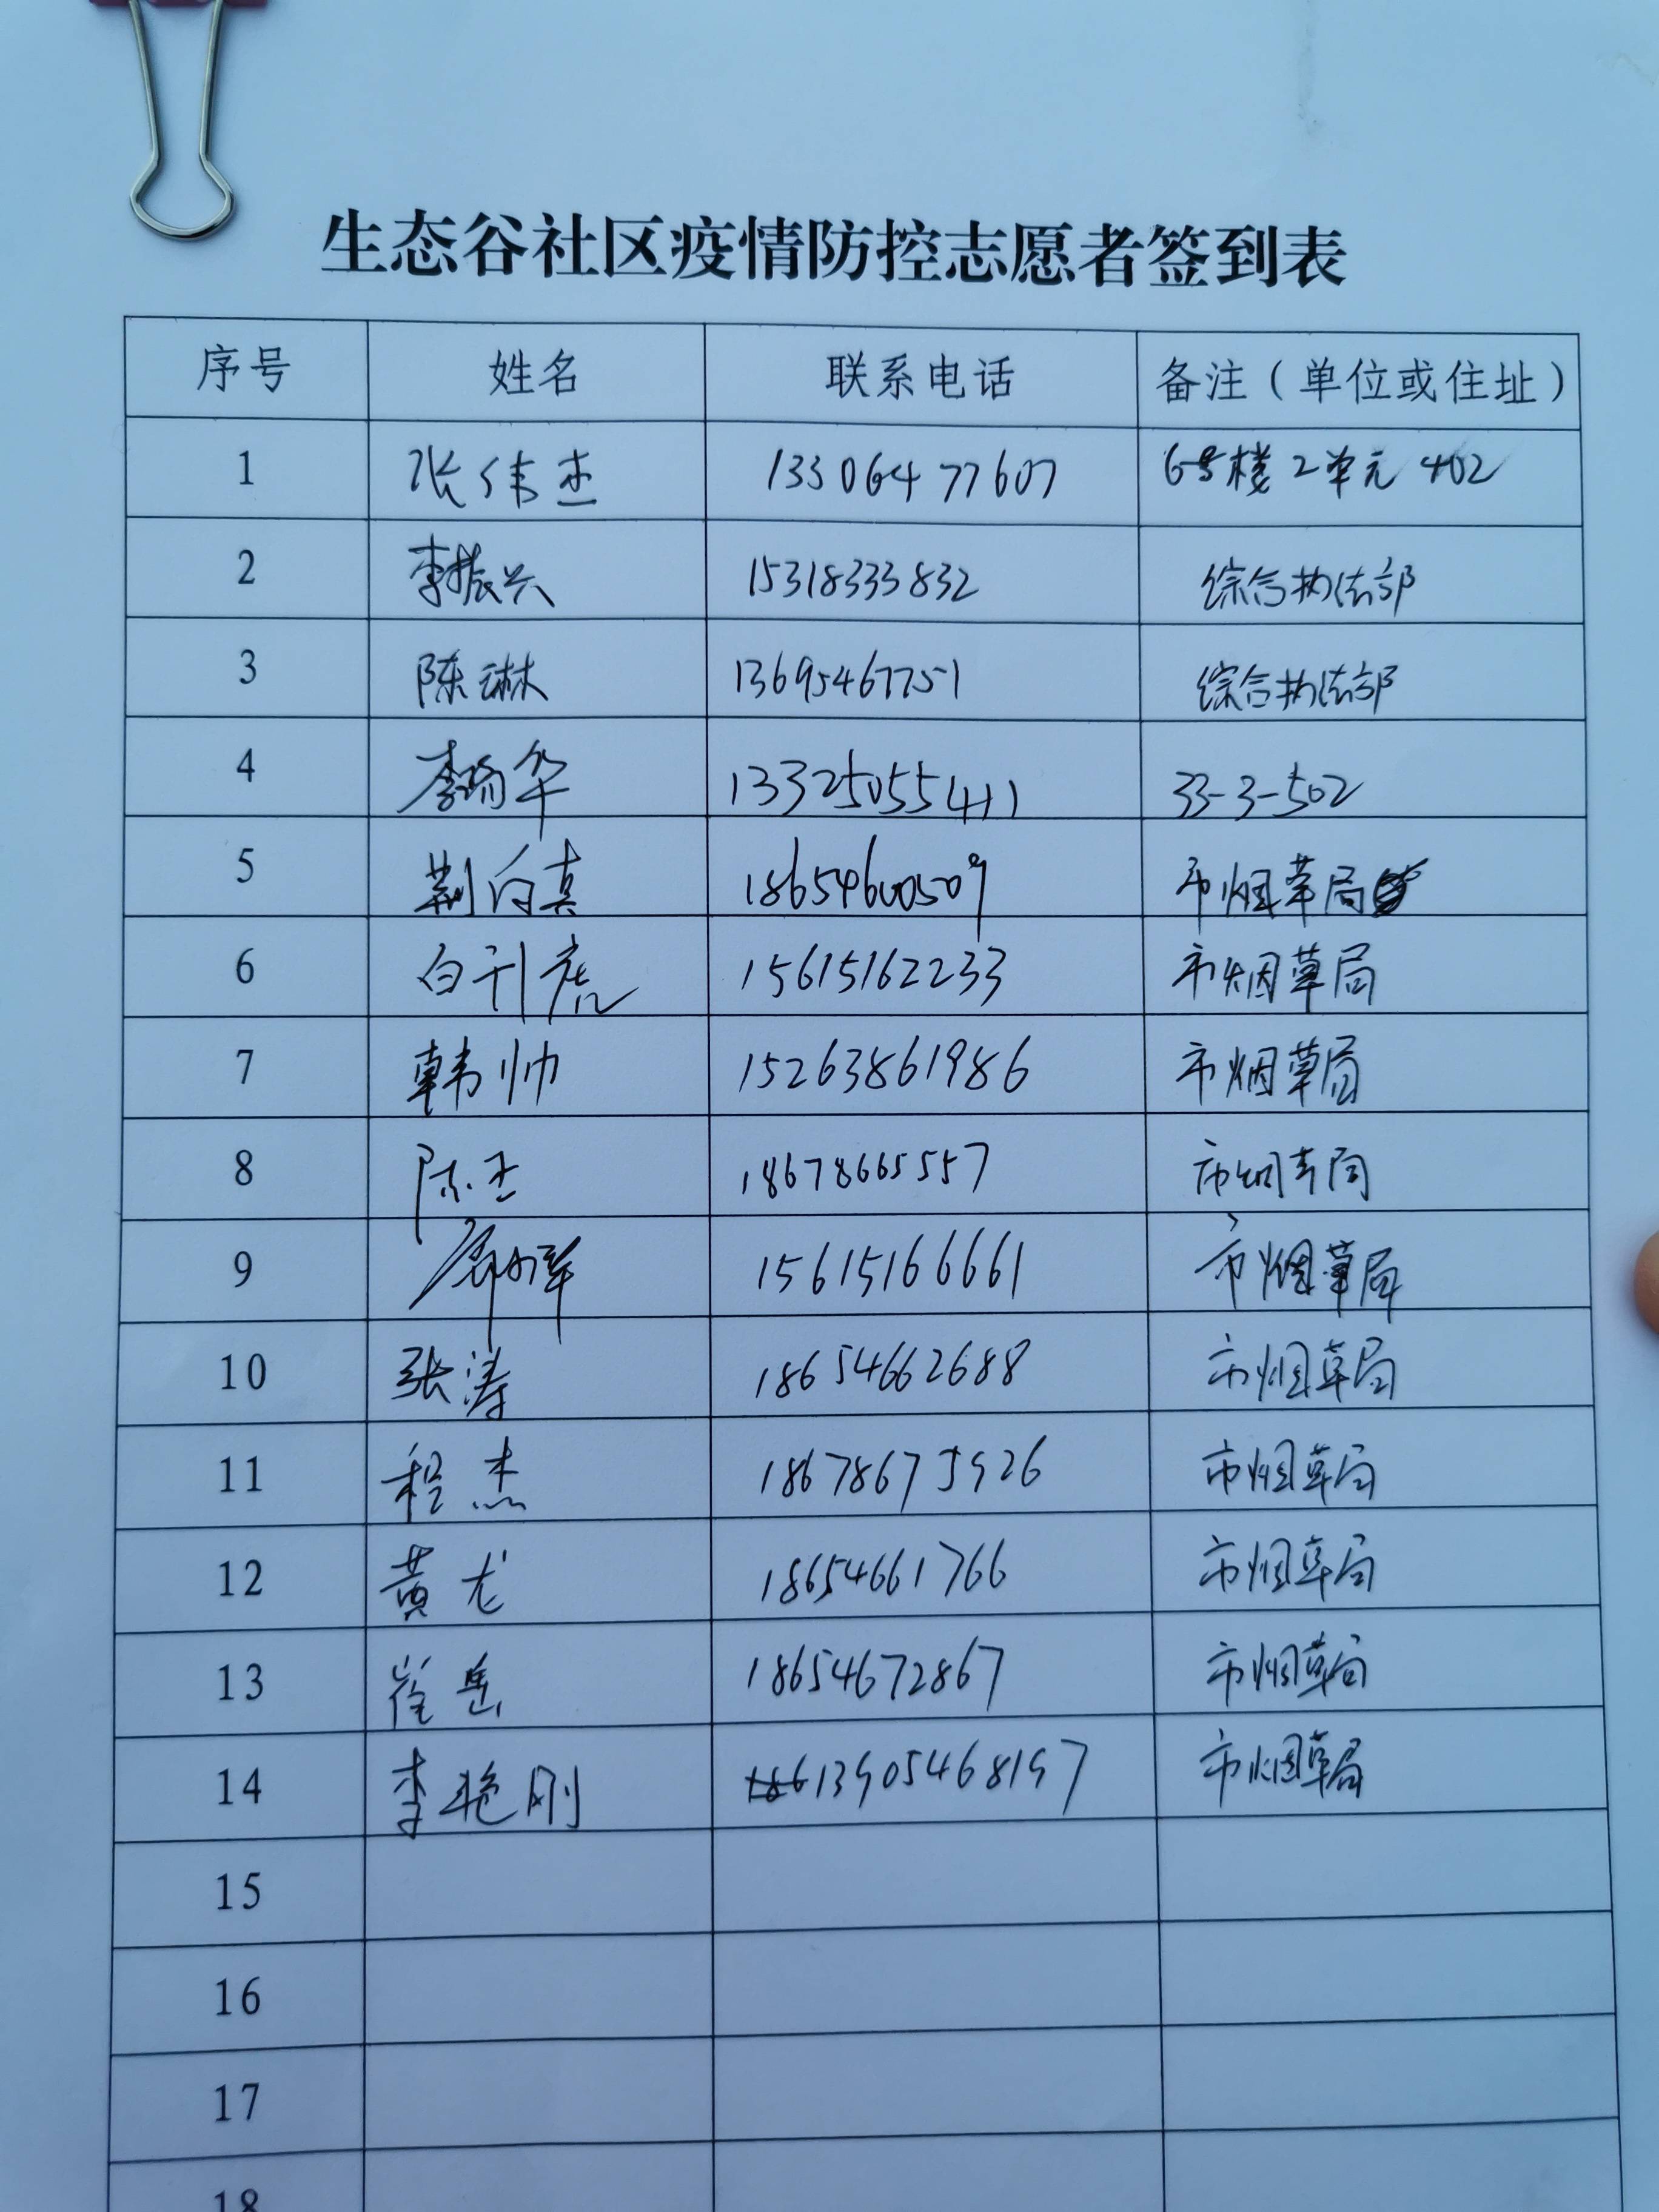 生态谷社区疫情防控志愿者签到表
序号 姓名 联系电话 备注（单位或住址）
1 张伟杰 13306477607 6号楼2单元402
2 李振兴 15318333832 综合执法部
3 陈琳 13695467751 综合执法部
4 李瑜华 13325055411 33-3-502
5 荆向真 18654600509 市烟草局
6 白刊虎 15615162233 市烟草局
7 韩帅 15263861986 市烟草局
8 陈王 18678665557 市烟草局
9 15615166661 市烟草局
10 张涛 18654662688 市烟草局
11 程杰 18678675926 市烟草局
12 黄龙 18654661766 市烟草局
13 崔岳 18654672867 市烟草局
14 李艳刚 13905468197 市烟草局
15
16
17
18